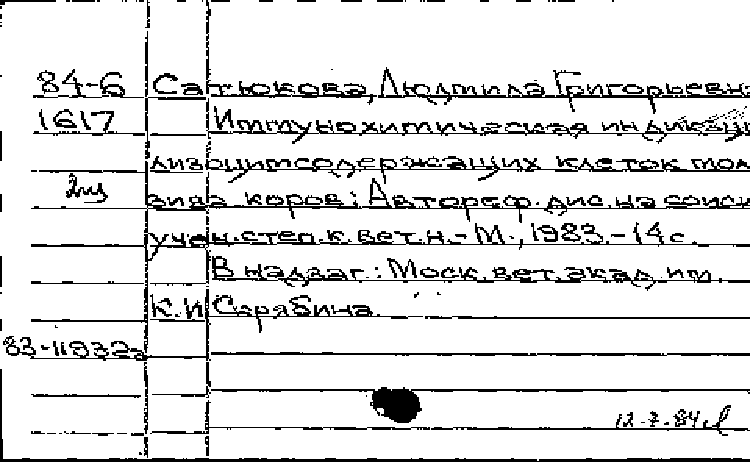 84-6 Сатюкова, Людмила Григорьевн
1617 Иммунохимическая индикаци
лизоцимсодержащих клеток мол
2 экз
зива коров: Автореф. дис. на соиск
учен. степ. к. вет. н. - М., 1983. - 14 с.
В надзаг.: Моск. вет. акад. им.
К. И. Скрябина.
83-11932а
12-3-84